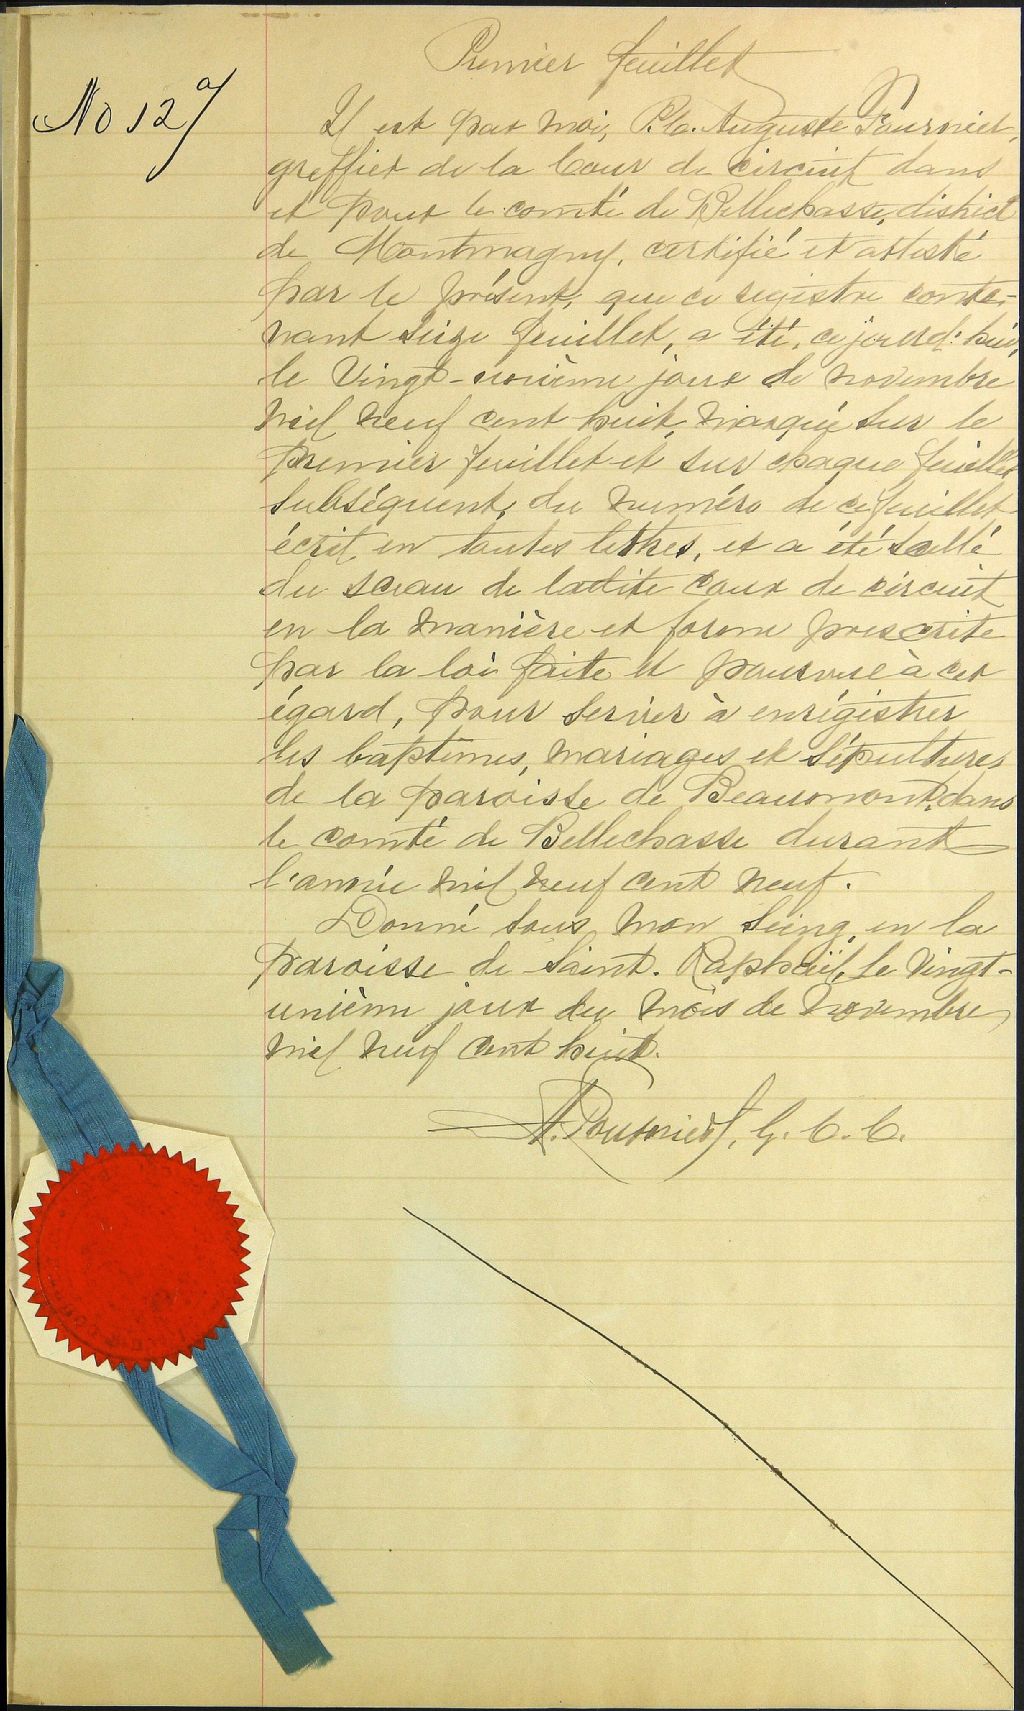 Premier feuillet
No 127
Il est par moi, P. G. Auguste Fournier,
greffier de la Cour de circuit dans
et pour le comté de Bellechasse, district
de Montmagny, certifié et attesté
par le présent, que ce registre conte-
nant seize feuillet, a été, ce jourd'hui,
le Vingt-unième jour de novembre
mil neuf cent huit, marqué sur le
premier feuillet et sur chaque feuillet
subséquent, du numéro de ce feuillet
écrit en toutes lettres, et a été scellé
du sceau de ladite Cour de circuit
en la manière et forme prescrite
par la loi faite et pourvue à cet
égard, pour servir à enrégistrer
les baptêmes, mariages et sépultures
de la paroisse de Beaumont, dans
le comté de Bellechasse durant
l'année mil neuf cent neuf.
Donné sous mon seing, en la
paroisse de Saint. Raphaël, le Vingt-
unième jour du mois de Novembre
mil neuf cent huit.
A. Fournier, G. C. C.